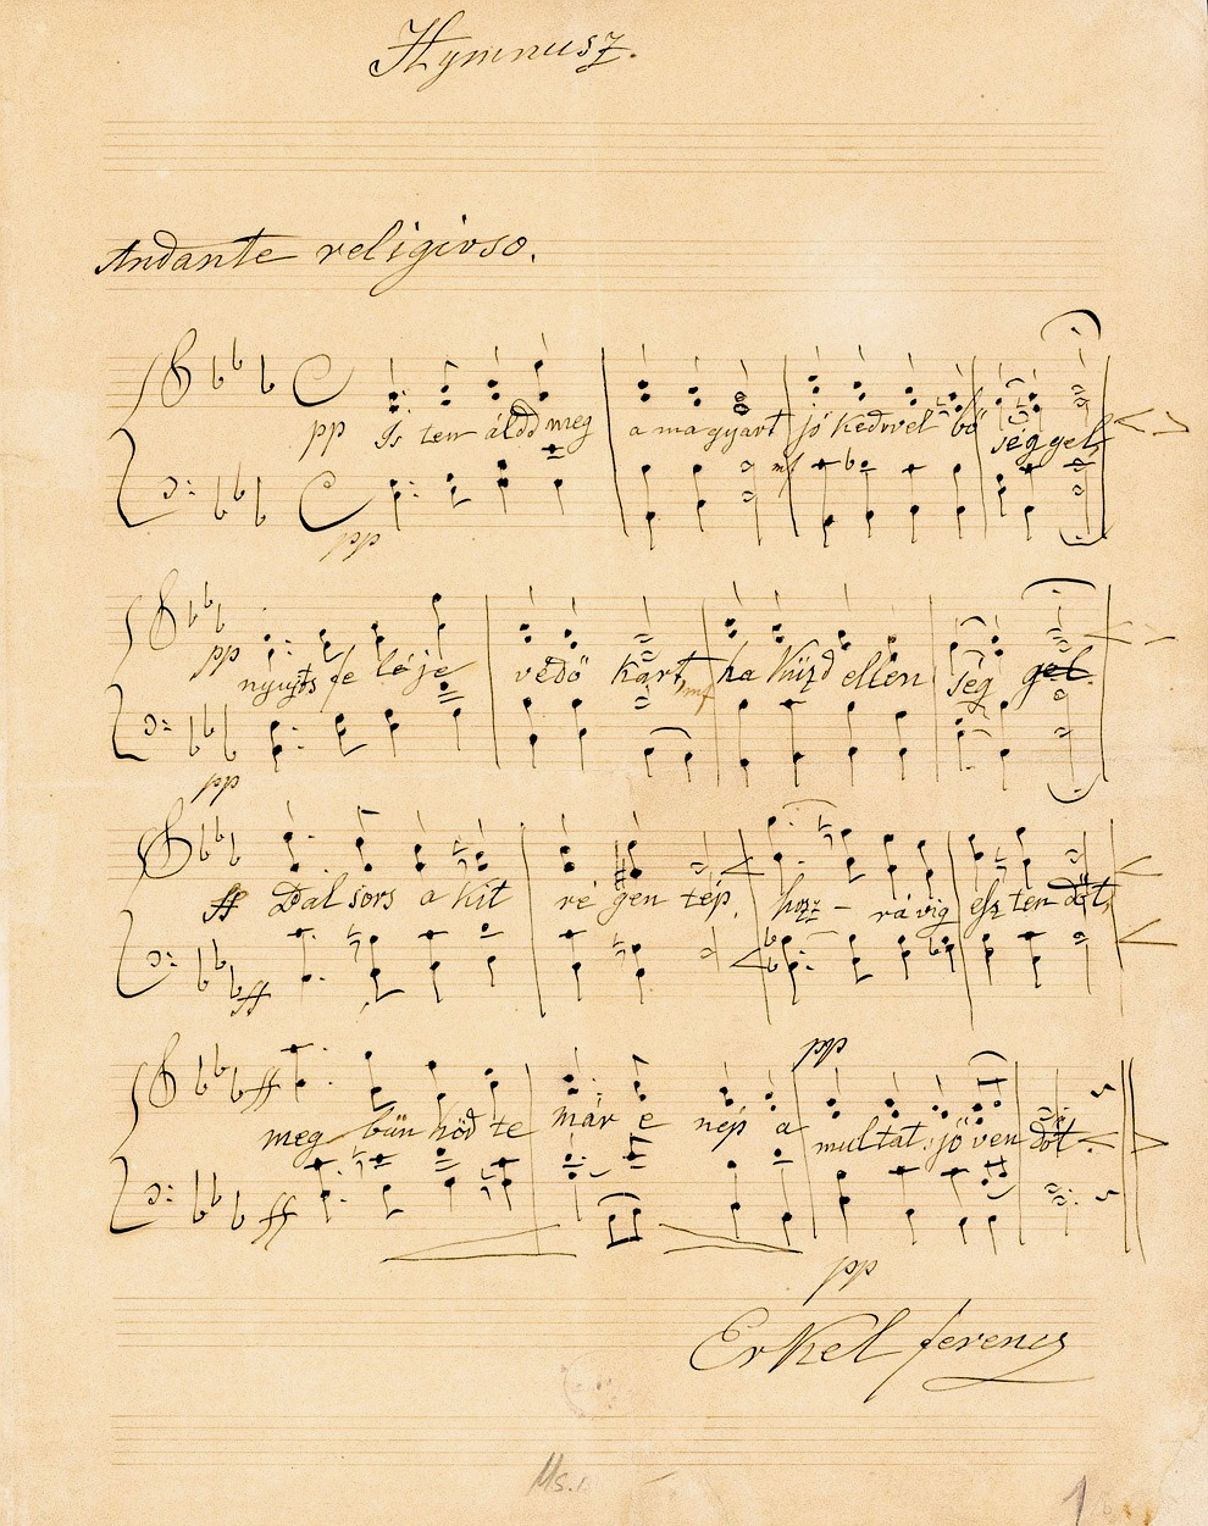 Hymnusz.
Andante religioso.
pp Is ten áldd meg a ma gyart jó kedvvel bő ség gel,
mf
pp
pp nyujts fe lé je védő kart, ha küzd ellen ség gel.
mf
pp
ff Bal sors a kit ré gen tép, hozz - rá vig esz ten dőt,
ff
pp
ff meg bün hőd te már e nép a multat jö ven dőt.
ff
pp
Erkel Ferencz
Ms.
1